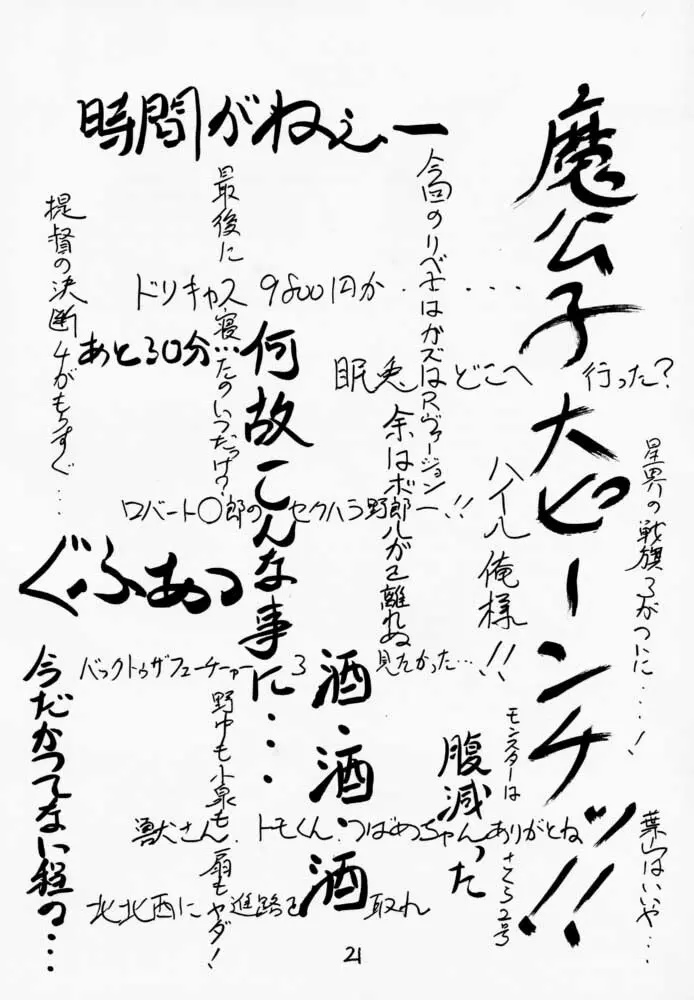 時間がねぇー
魔公子大ピーンチッ!!
星界の戦旗3がついに・・・・!
葉山はいいや・・・
ハイル俺様!!
モンスターは
さくら2号
腹減った
余はボ郎ルがヱ離れぬ
最後に
寝たのいつだっけ?
野中も小泉も扇もヤダ!
提督の決断4がもうすぐ・・・
ドリキャス9800円か・・・・・
あと30分・・・
何故こんな事に・・・
眠兎はどこへ行った?
ロバート〇郎のセクハラ野郎ー!!
ぐふあっ
バックトゥザフューチャー3見たかった・・・
酒・酒・酒
獣さん、トモくん、つばめちゃんありがとね
北北西に進路を取れ
今だかつてない程の・・・
21